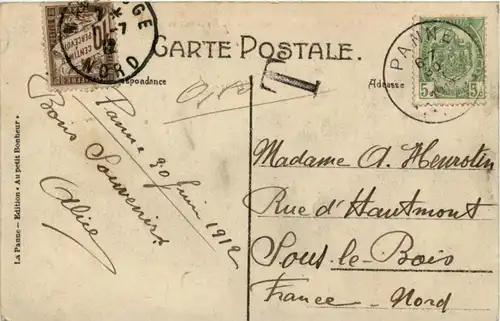 CARTE POSTALE.
Correspondance
Adresse
T
PANNE
5 5
10 CENTIMES
A PERCEVOIR
NORD
La Panne — Edition « Au petit Bonheur »
Panne 30 Juin 1912
Bons Souvenirs
Alice
Madame A. Henrotin
Rue d'Hautmont
Sous-le-Bois
France - Nord